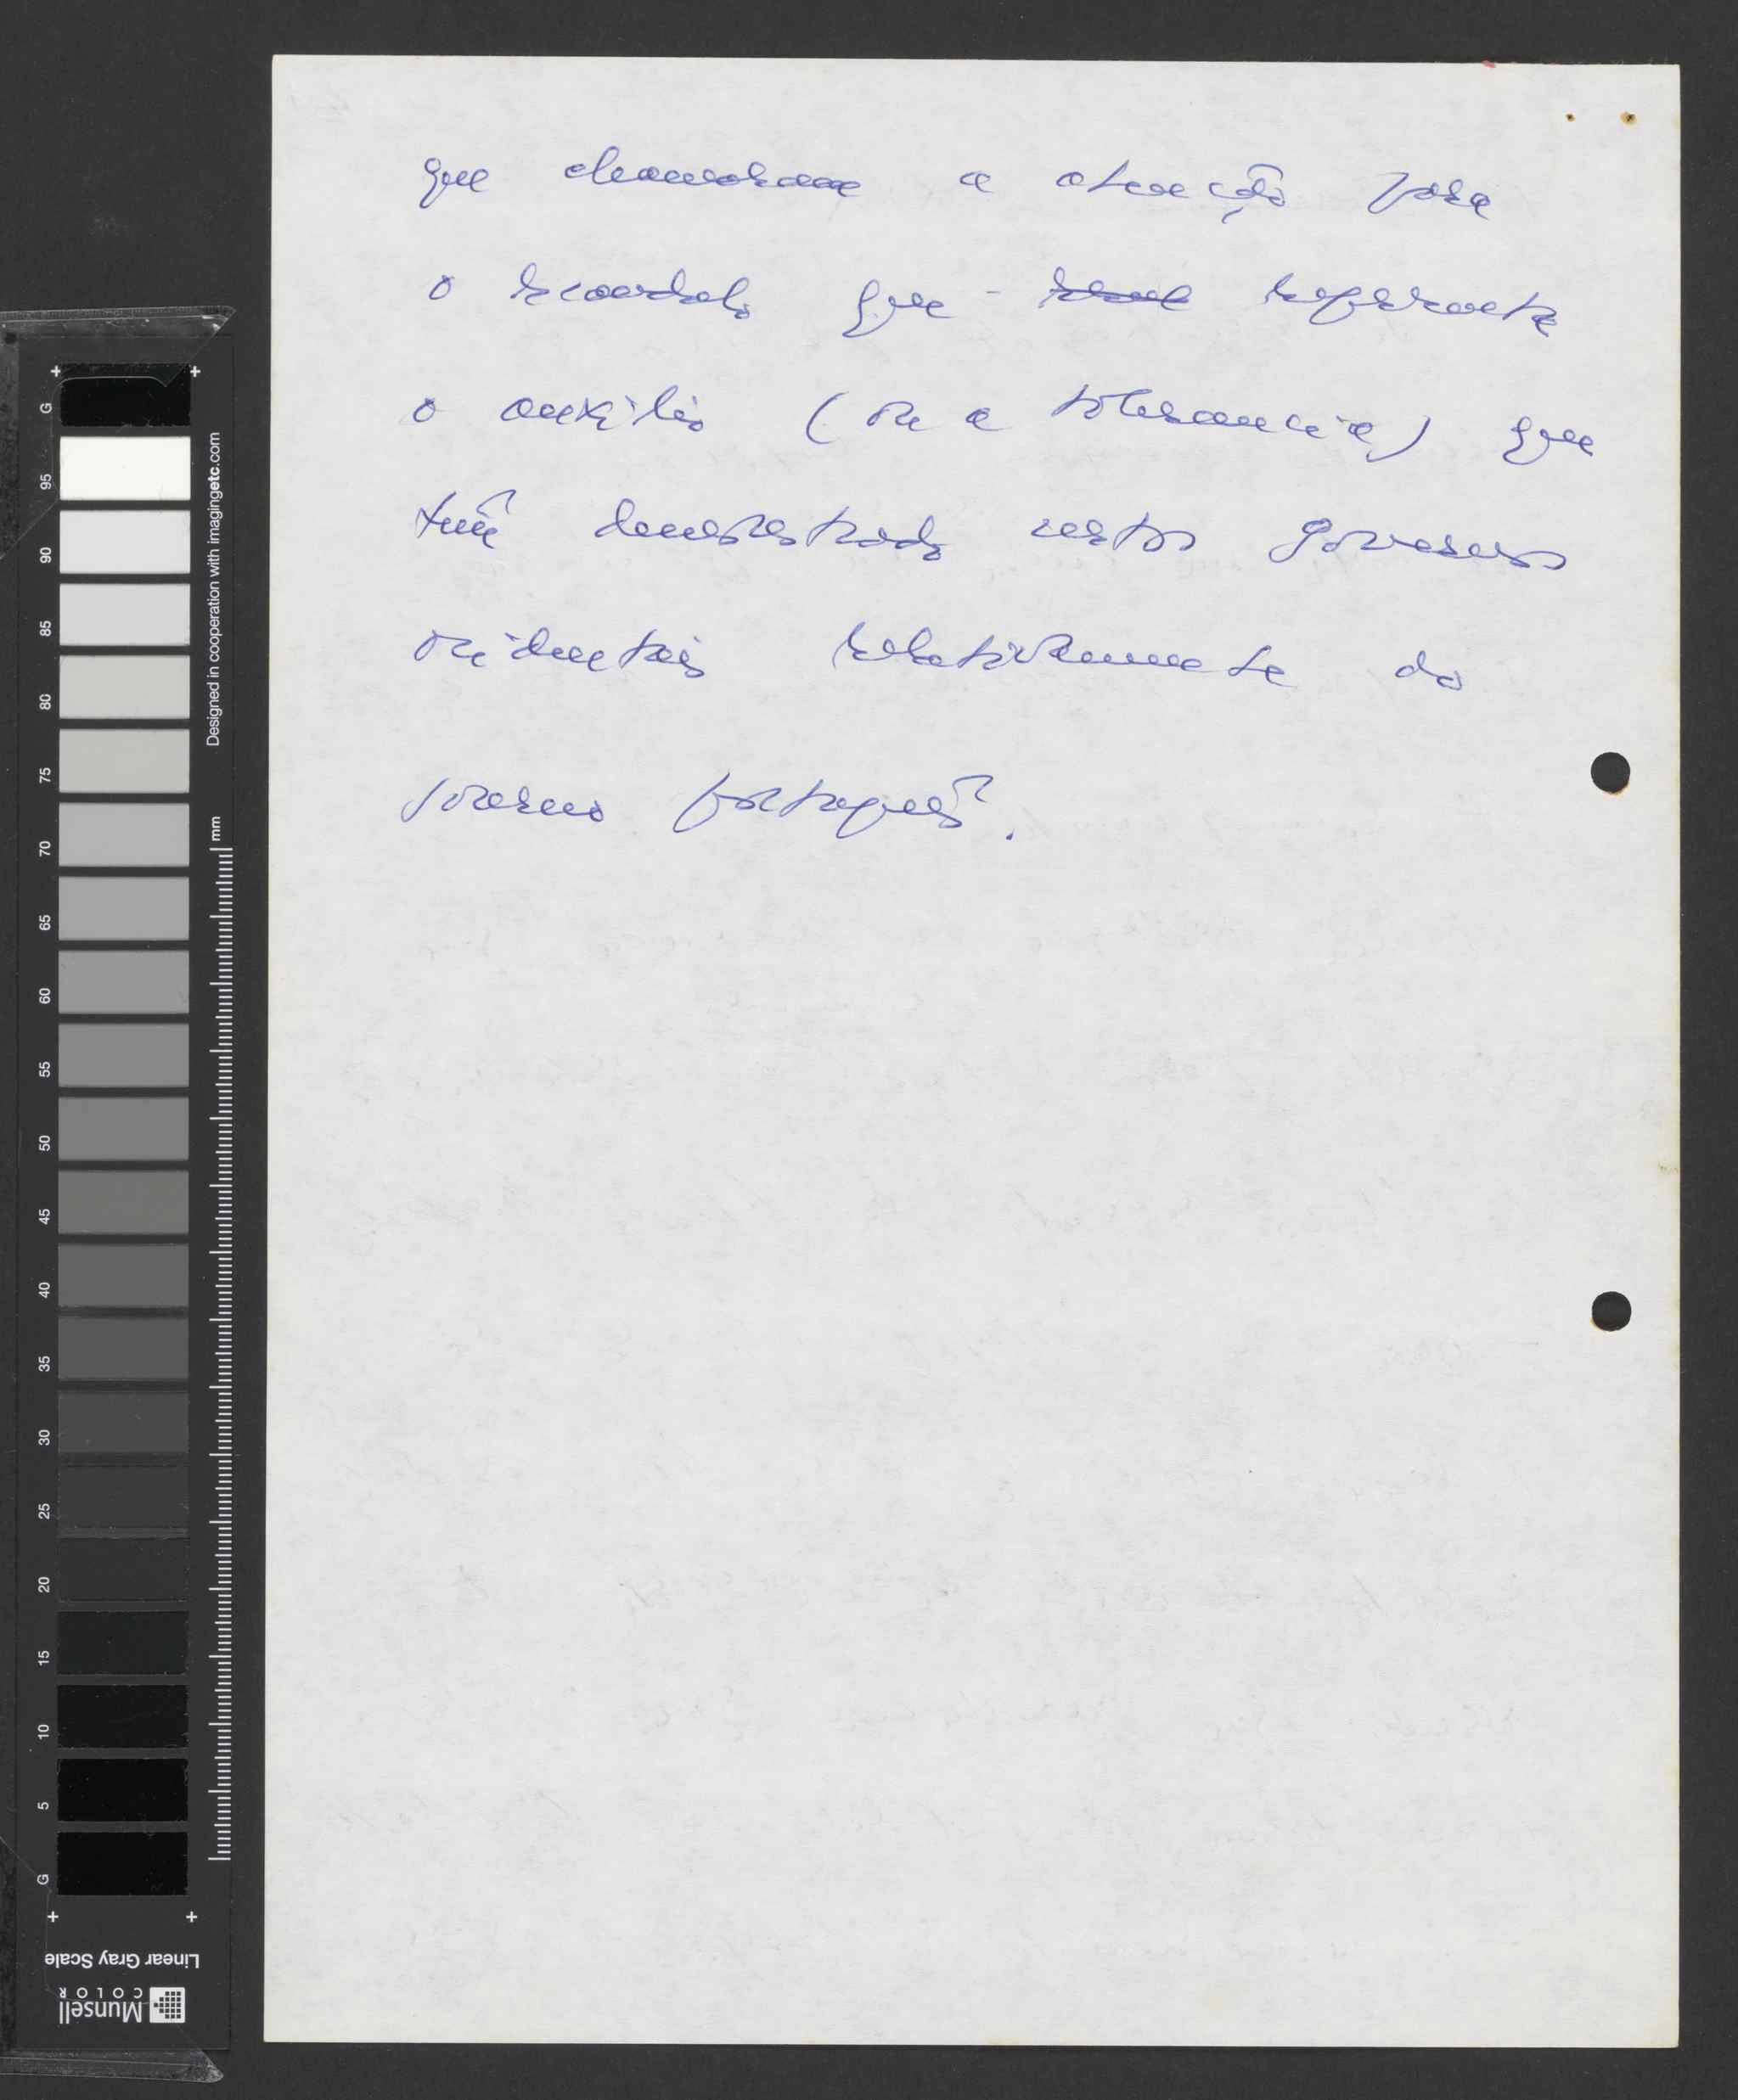 que chamaram a atenção para
o escandalo que - representa
o auxílio (ou a tolerancia) que
têm demonstrado certos governos
ocidentais relativamente ao
governo português.
G 95 90 85 80 75 70 65 60 55 50 45 40 35 30 25 20 15 10 5 G
Designed in cooperation with imagingetc.com
mm
Linear Gray Scale
Munsell
COLOR